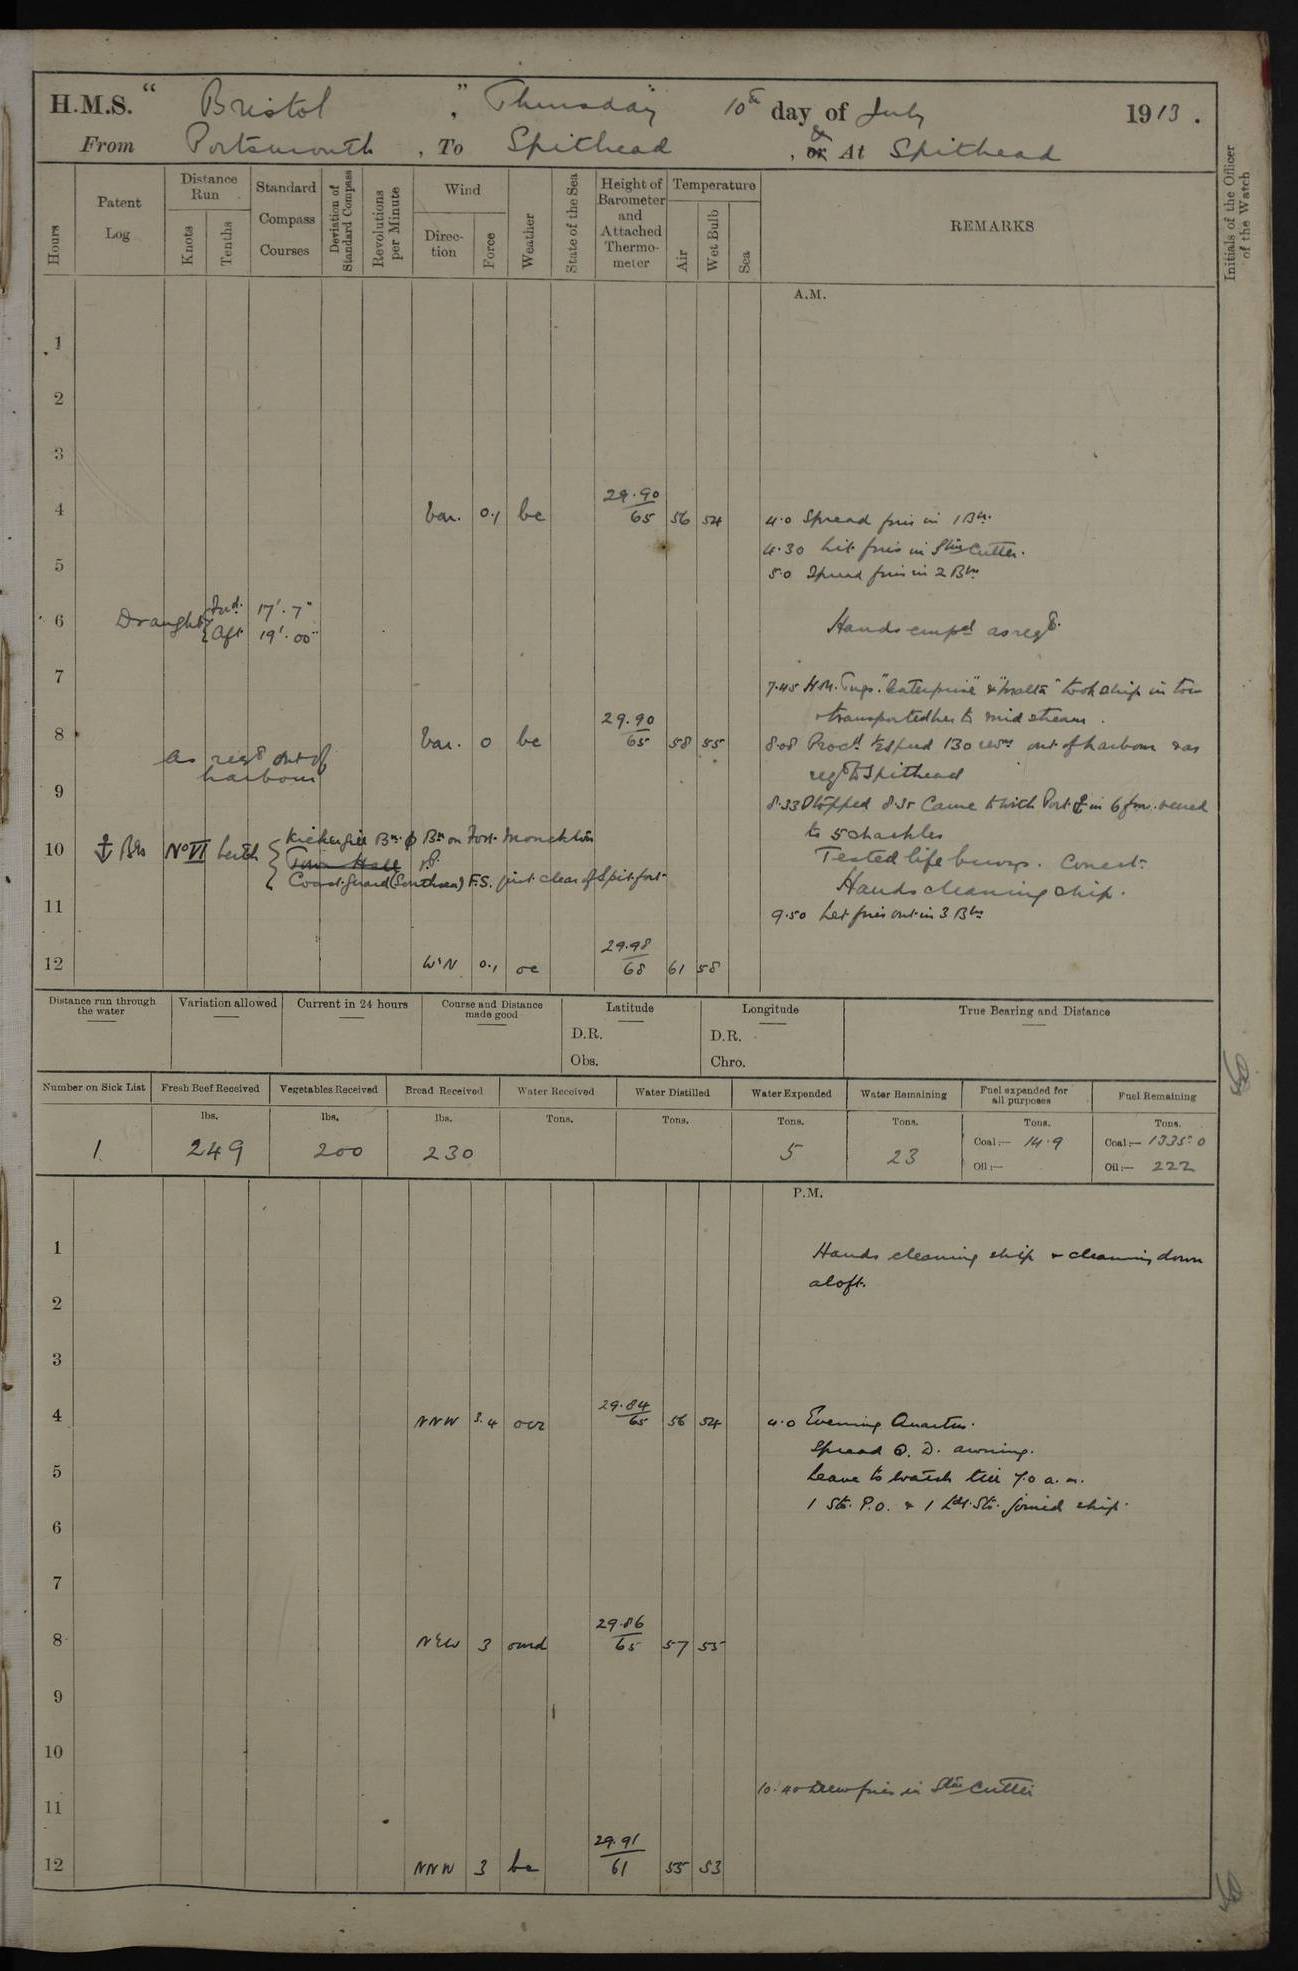 H.M.S. “ Bristol ” Thursday 10th day of July 1913 .
From Portsmouth , To Spithead , or & At Spithead
Hours
Patent Log
Distance Run
Knots
Tenths
Standard Compass Courses
Deviation of Standard Compass
Revolutions per Minute
Wind
Direction
Force
Weather
State of the Sea
Height of Barometer and Attached Thermometer
Temperature
Air
Wet Bulb
Sea
REMARKS
Initials of the Officer of the Watch
A.M.
1
2
3
4 Var. 0.1 bc 29.90 65 56 54 4.0 Spread fires in 1 Blr.
4.30 Lit fires in Stm Cutter.
5 5.0 Spread fires in 2 Blrs
6 Draught { Ford. 17'. 7"
Aft 19'. 00"
Hands empd as reqd.
7
7.45 H.M. Tugs. "Enterprise" & "Malta" took ship in tow
& transported her to mid stream.
8 Var. 0 bc 29.90 65 58 55 8.08 Procd 130 revns out of harbour & as
reqd to Spithead
As reqd out of
harbour
9
8.33 Stopped 8.35 Came to with Port ⚓ in 6 fms. veered
to 5 shackles
10 ⚓ Brs No VI berth { Kickergill Bn. ϕ Bn on Fort Monckton
Town Hall
Coast guard (Southsea) F.S. just clear of Spit fort
Tested life buoys. Correct.
Hands cleaning ship.
11
9.50 Let fires out in 3 Blrs
12 W'N 0.1 oc 29.98 68 61 58
Distance run through the water
Variation allowed
Current in 24 hours
Course and Distance made good
Latitude
D.R.
Obs.
Longitude
D.R.
Chro.
True Bearing and Distance
Number on Sick List
Fresh Beef Received
Vegetables Received
Bread Received
Water Received
Water Distilled
Water Expended
Water Remaining
Fuel expended for all purposes
Fuel Remaining
lbs. lbs. lbs. Tons. Tons. Tons. Tons. Tons. Tons.
1 249 200 230 5 23 Coal:— 14.9 Coal:— 1335.0
Oil:— Oil:— 222
P.M.
1 Hands cleaning ship & cleaning down
aloft.
2
3
4 NNW 3.4 ocr 29.84 65 56 54 4.0 Evening Quarters.
Spread Q. D. awning.
5 Leave to watch till 7.0 a.m.
1 Sto. P.O. & 1 Ldg. Sto. joined ship.
6
7
8 N'W 3 omd 29.86 65 57 55
9
10
10.40 Drew fires in Stm Cutter
11
12 NNW 3 bc 29.91 61 55 53